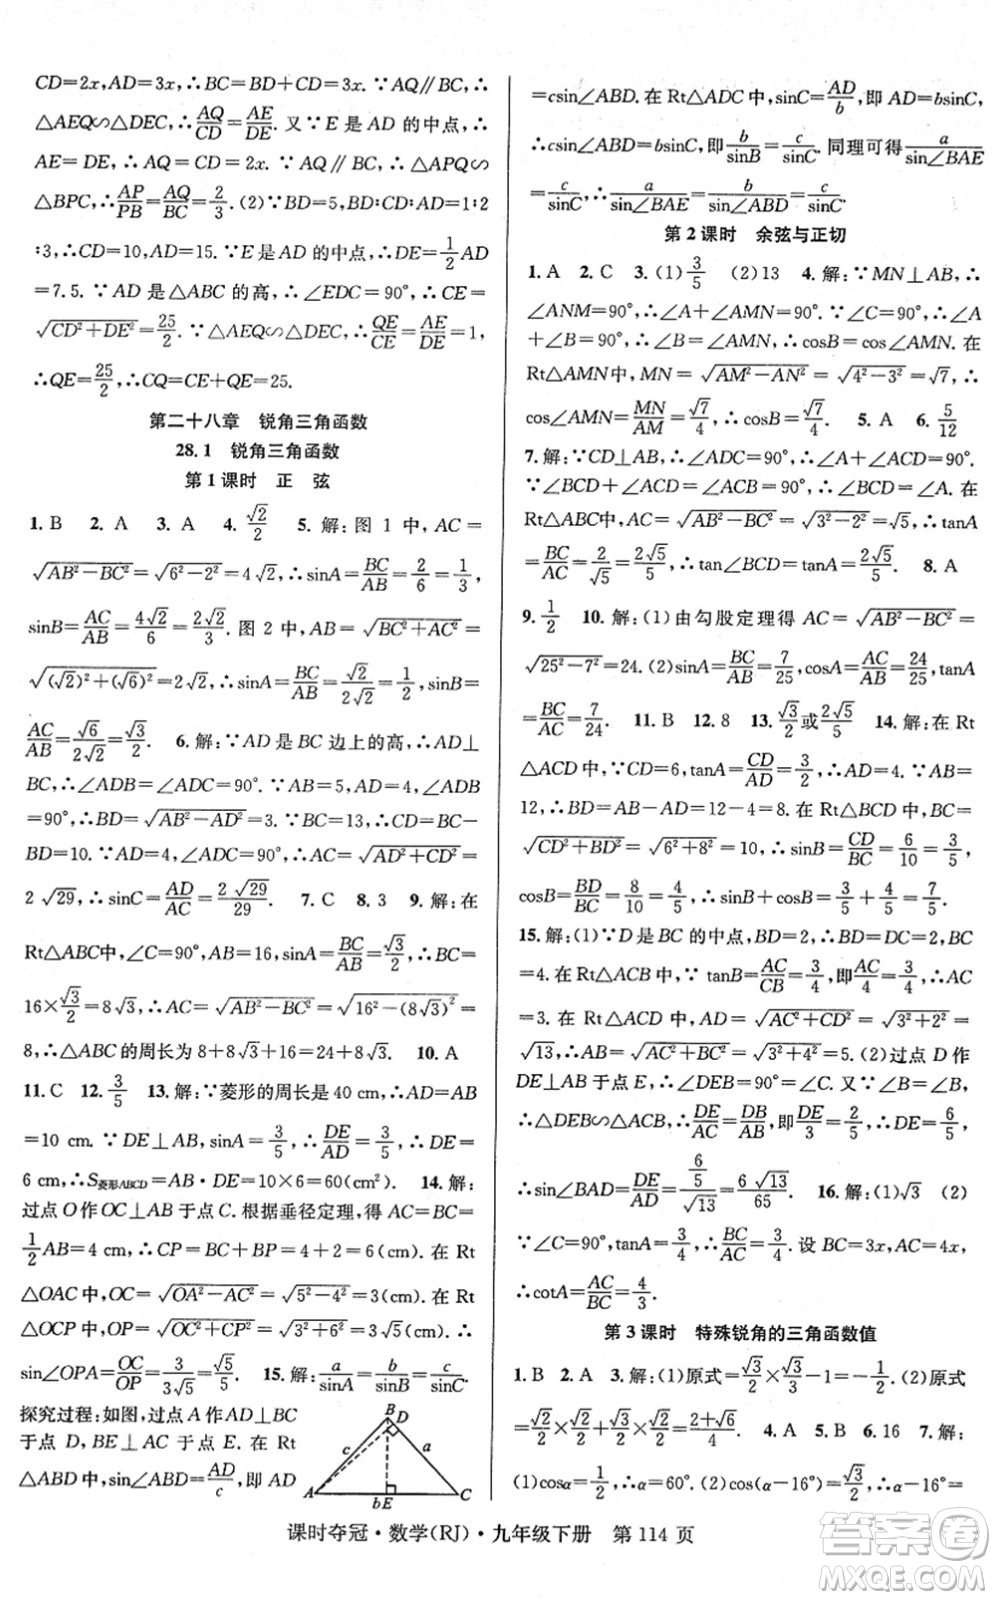 CD=2x,AD=3x,∴BC=BD+CD=3x.∵AQ∥BC,∴
△AEQ∽△DEC,∴AQ/CD=AE/DE.又∵E是AD的中点,∴
AE=DE,∴AQ=CD=2x.∵AQ∥BC,∴△APQ∽
△BPC,∴AP/PB=AQ/BC=2/3.(2)∵BD∶CD∶AD=1∶2
∶3,∴CD=10,AD=15.∵E是AD的中点,∴DE=1/2AD
=7.5.∵AD是△ABC的高,∴∠EDC=90°,∴CE=
√(CD²+DE²)=25/2.∵△AEQ∽△DEC,∴QE/CE=AE/DE=1,
∴QE=25/2,∴CQ=CE+QE=25.
第二十八章 锐角三角函数
28.1 锐角三角函数
第1课时 正 弦
1.B 2.A 3.A 4.√2/2 5.解:图1中,AC=
√(AB²-BC²)=√(6²-2²)=4√2,∴sinA=BC/AB=2/6=1/3,
sinB=AC/AB=4√2/6=2√2/3.图2中,AB=√(BC²+AC²)=
√((√2)²+(√6)²)=2√2,∴sinA=BC/AB=√2/2√2=1/2,sinB=
AC/AB=√6/2√2=√3/2. 6.解:∵AD是BC边上的高,∴AD⊥
BC,∴∠ADB=∠ADC=90°.∵AB=5,AD=4,∠ADB
=90°,∴BD=√(AB²-AD²)=3.∵BC=13,∴CD=BC-
BD=10.∵∠ADC=90°,∴AC=√(AD²+CD²)=
2√29,∴sinC=AD/AC=2√29/29. 7.C 8.3 9.解:在
Rt△ABC中,∠C=90°,AB=16,sinA=BC/AB=√3/2,∴BC=
16×√3/2=8√3,∴AC=√(AB²-BC²)=√(16²-(8√3)²)=
8,∴△ABC的周长为8+8√3+16=24+8√3. 10.A
11.C 12.3/5 13.解:∵菱形的周长为40 cm,∴AD=AB
=10 cm.∵DE⊥AB,sinA=3/5,∴DE/AD=3/5,∴DE=
6 cm,∴S菱形ABCD=AB·DE=10×6=60(cm²) 14.解:
过点O作OC⊥AB于点C.根据垂径定理,得AC=BC=
1/2AB=4 cm,∴CP=BC+BP=4+2=6(cm).在Rt
△OAC中,OC=√(OA²-AC²)=√(5²-4²)=3(cm).在Rt
△OCP中,OP=√(OC²+CP²)=√(3²+6²)=3√5(cm),∴
sin∠OPA=OC/OP=3/3√5=√5/5. 15.解:a/sinA=b/sinB=c/sinC.
探究过程:如图,过点A作AD⊥BC
于点D,BE⊥AC于点E.在Rt
△ABD中,sin∠ABD=AD/c,即AD
B
D
c
a
A
bE
C
=csin∠ABD.在Rt△ADC中,sinC=AD/b,即AD=bsinC,
∴csin∠ABD=bsinC,即b/sinB=c/sinC.同理可得a/sin∠BAE
=c/sinC,∴a/sin∠BAE=b/sin∠ABD=c/sinC.
第2课时 余弦与正切
1.A 2.C 3.(1)3/5 (2)13 4.解:∵MN⊥AB,∴
∠ANM=90°,∴∠A+∠AMN=90°.∵∠C=90°,∴∠A
+∠B=90°,∴∠B=∠AMN,∴cosB=cos∠AMN.在
Rt△AMN中,MN=√(AM²-AN²)=√(4²-3²)=√7,∴
cos∠AMN=MN/AM=√7/4,∴cosB=√7/4. 5.A 6.5/12
7.解:∵CD⊥AB,∴∠ADC=90°,∴∠A+∠ACD=90°.
∵∠BCD+∠ACD=∠ACB=90°,∴∠BCD=∠A.在
Rt△ABC中,AC=√(AB²-BC²)=√(3²-2²)=√5,∴tanA
=BC/AC=2/√5=2√5/5,∴tan∠BCD=tanA=2√5/5. 8.A
9.1/2 10.解:(1)由勾股定理得AC=√(AB²-BC²)=
√(25²-7²)=24.(2)sinA=BC/AB=7/25,cosA=AC/AB=24/25,tanA
=BC/AC=7/24. 11.B 12.8 13.√3/2或2√5/5 14.解:在Rt
△ACD中,∵CD=6,tanA=CD/AD=3/2,∴AD=4.∵AB=
12,∴BD=AB-AD=12-4=8.在Rt△BCD中,BC=
√(CD²+BD²)=√(6²+8²)=10,∴sinB=CD/BC=6/10=3/5,
cosB=BD/BC=8/10=4/5,∴sinB+cosB=3/5+4/5=7/5.
15.解:(1)∵D是BC的中点,BD=2,∴BD=DC=2,BC
=4.在Rt△ACB中,∵tanB=AC/CB=3/4,即AC/4=3/4,∴AC
=3.在Rt△ACD中,AD=√(AC²+CD²)=√(3²+2²)=
√13,∴AB=√(AC²+BC²)=√(3²+4²)=5.(2)过点D作
DE⊥AB于点E,∴∠DEB=90°=∠C.又∵∠B=∠B,
∴△DEB∽△ACB,∴DE/AC=DB/AB,即DE/3=2/5,∴DE=6/5,
∴sin∠BAD=DE/AD=(6/5)/√13=6√13/65. 16.解:(1)√3 (2)
∵∠C=90°,tanA=3/4,∴BC/AC=3/4.设BC=3x,AC=4x,
∴cotA=AC/BC=4/3.
第3课时 特殊锐角的三角函数值
1.B 2.A 3.解:(1)原式=√3/2×√3/3-1=-1/2.(2)原式
=√2/2×√2/2+√3/2×√2/2=(2+√6)/4. 4.A 5.B 6.16 7.解:
(1)cosα=1/2,∴α=60°.(2)cos(α-16°)=√3/2,∴α-16°=
课时夺冠·数学(RJ)·九年级下册 第114页
答案圈
MXQE.COM